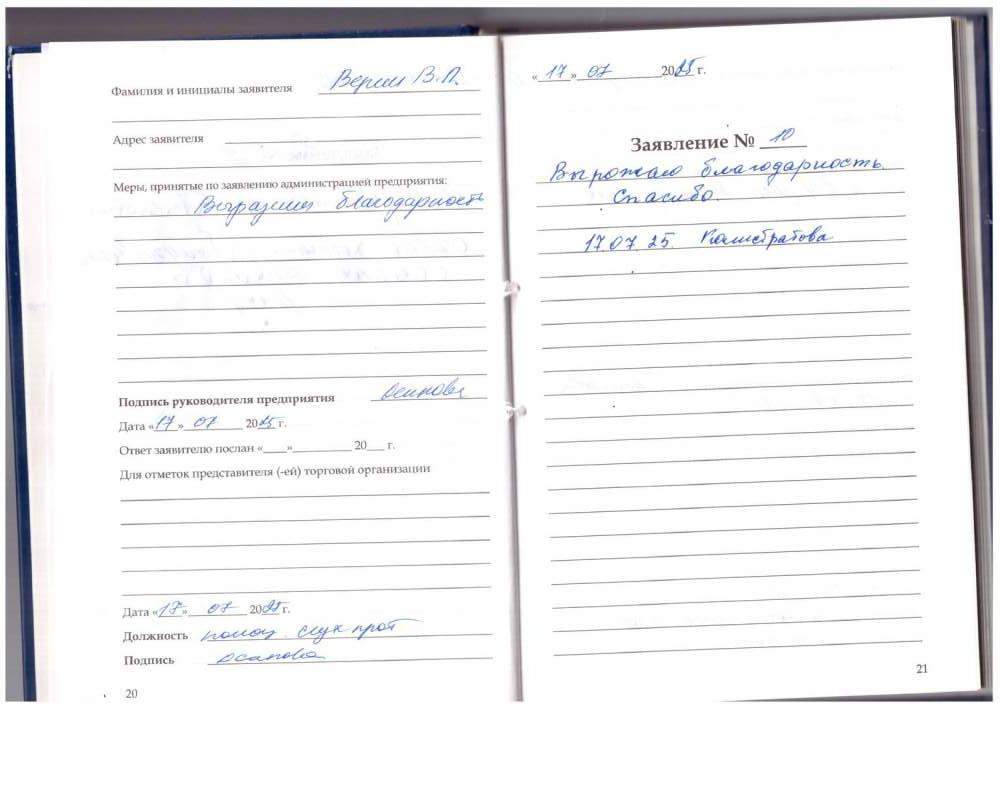 Фамилия и инициалы заявителя Верин В.П.
Адрес заявителя
Меры, принятые по заявлению администрацией предприятия:
благодарность
Подпись руководителя предприятия
Дата «17» 07 2025 г.
Ответ заявителю послан «____»__________ 20___ г.
Для отметок представителя (-ей) торговой организации
Дата «17» 07 2025 г.
Должность
Подпись
20
«17» 07 2025 г.
Заявление № 10
Вырожаю благодарность.
Спасибо.
17.07.25. Калистратова
21